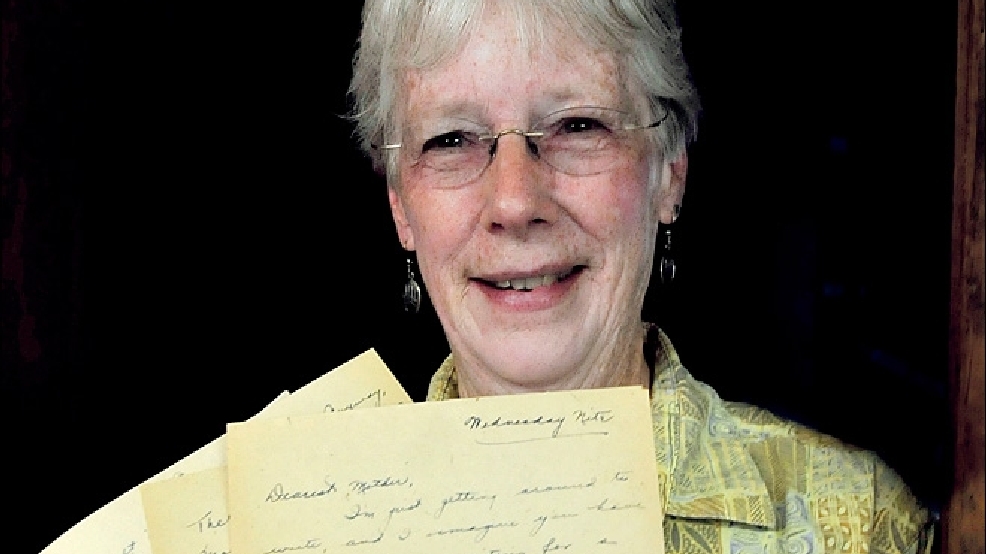 Wednesday Nite
Dearest Mother,
I'm just getting around to
The
write, and I imagine you have
for a